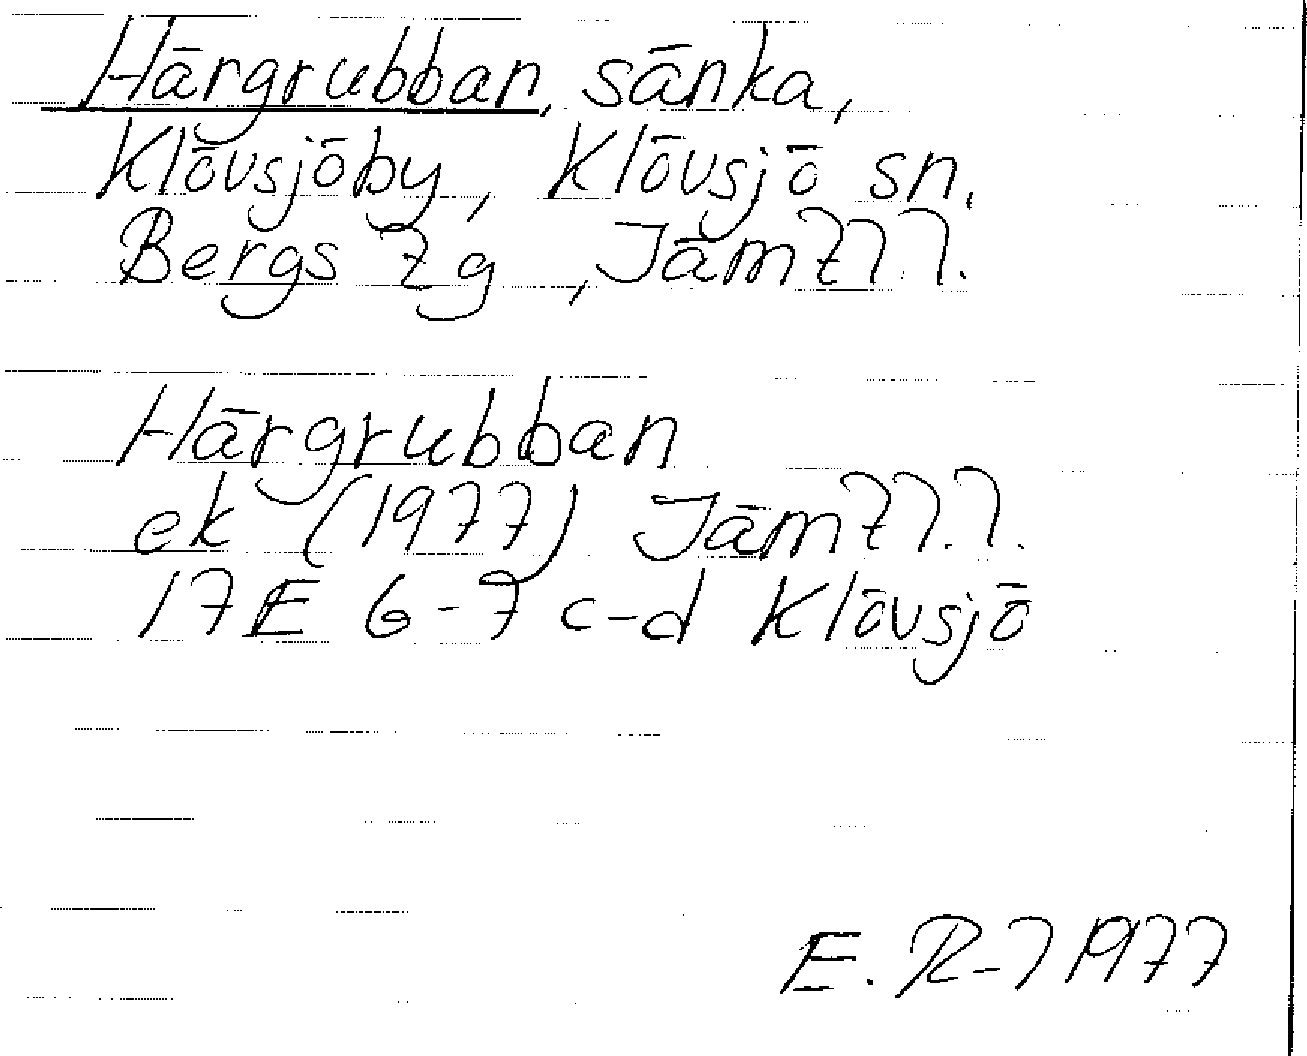 Härgrubban, sänka,
Klövsjöby, Klövsjö sn.
Bergs
Härgrubban
ek (1977)
17E 6-7 c-d Klövsjö
E. R-71977